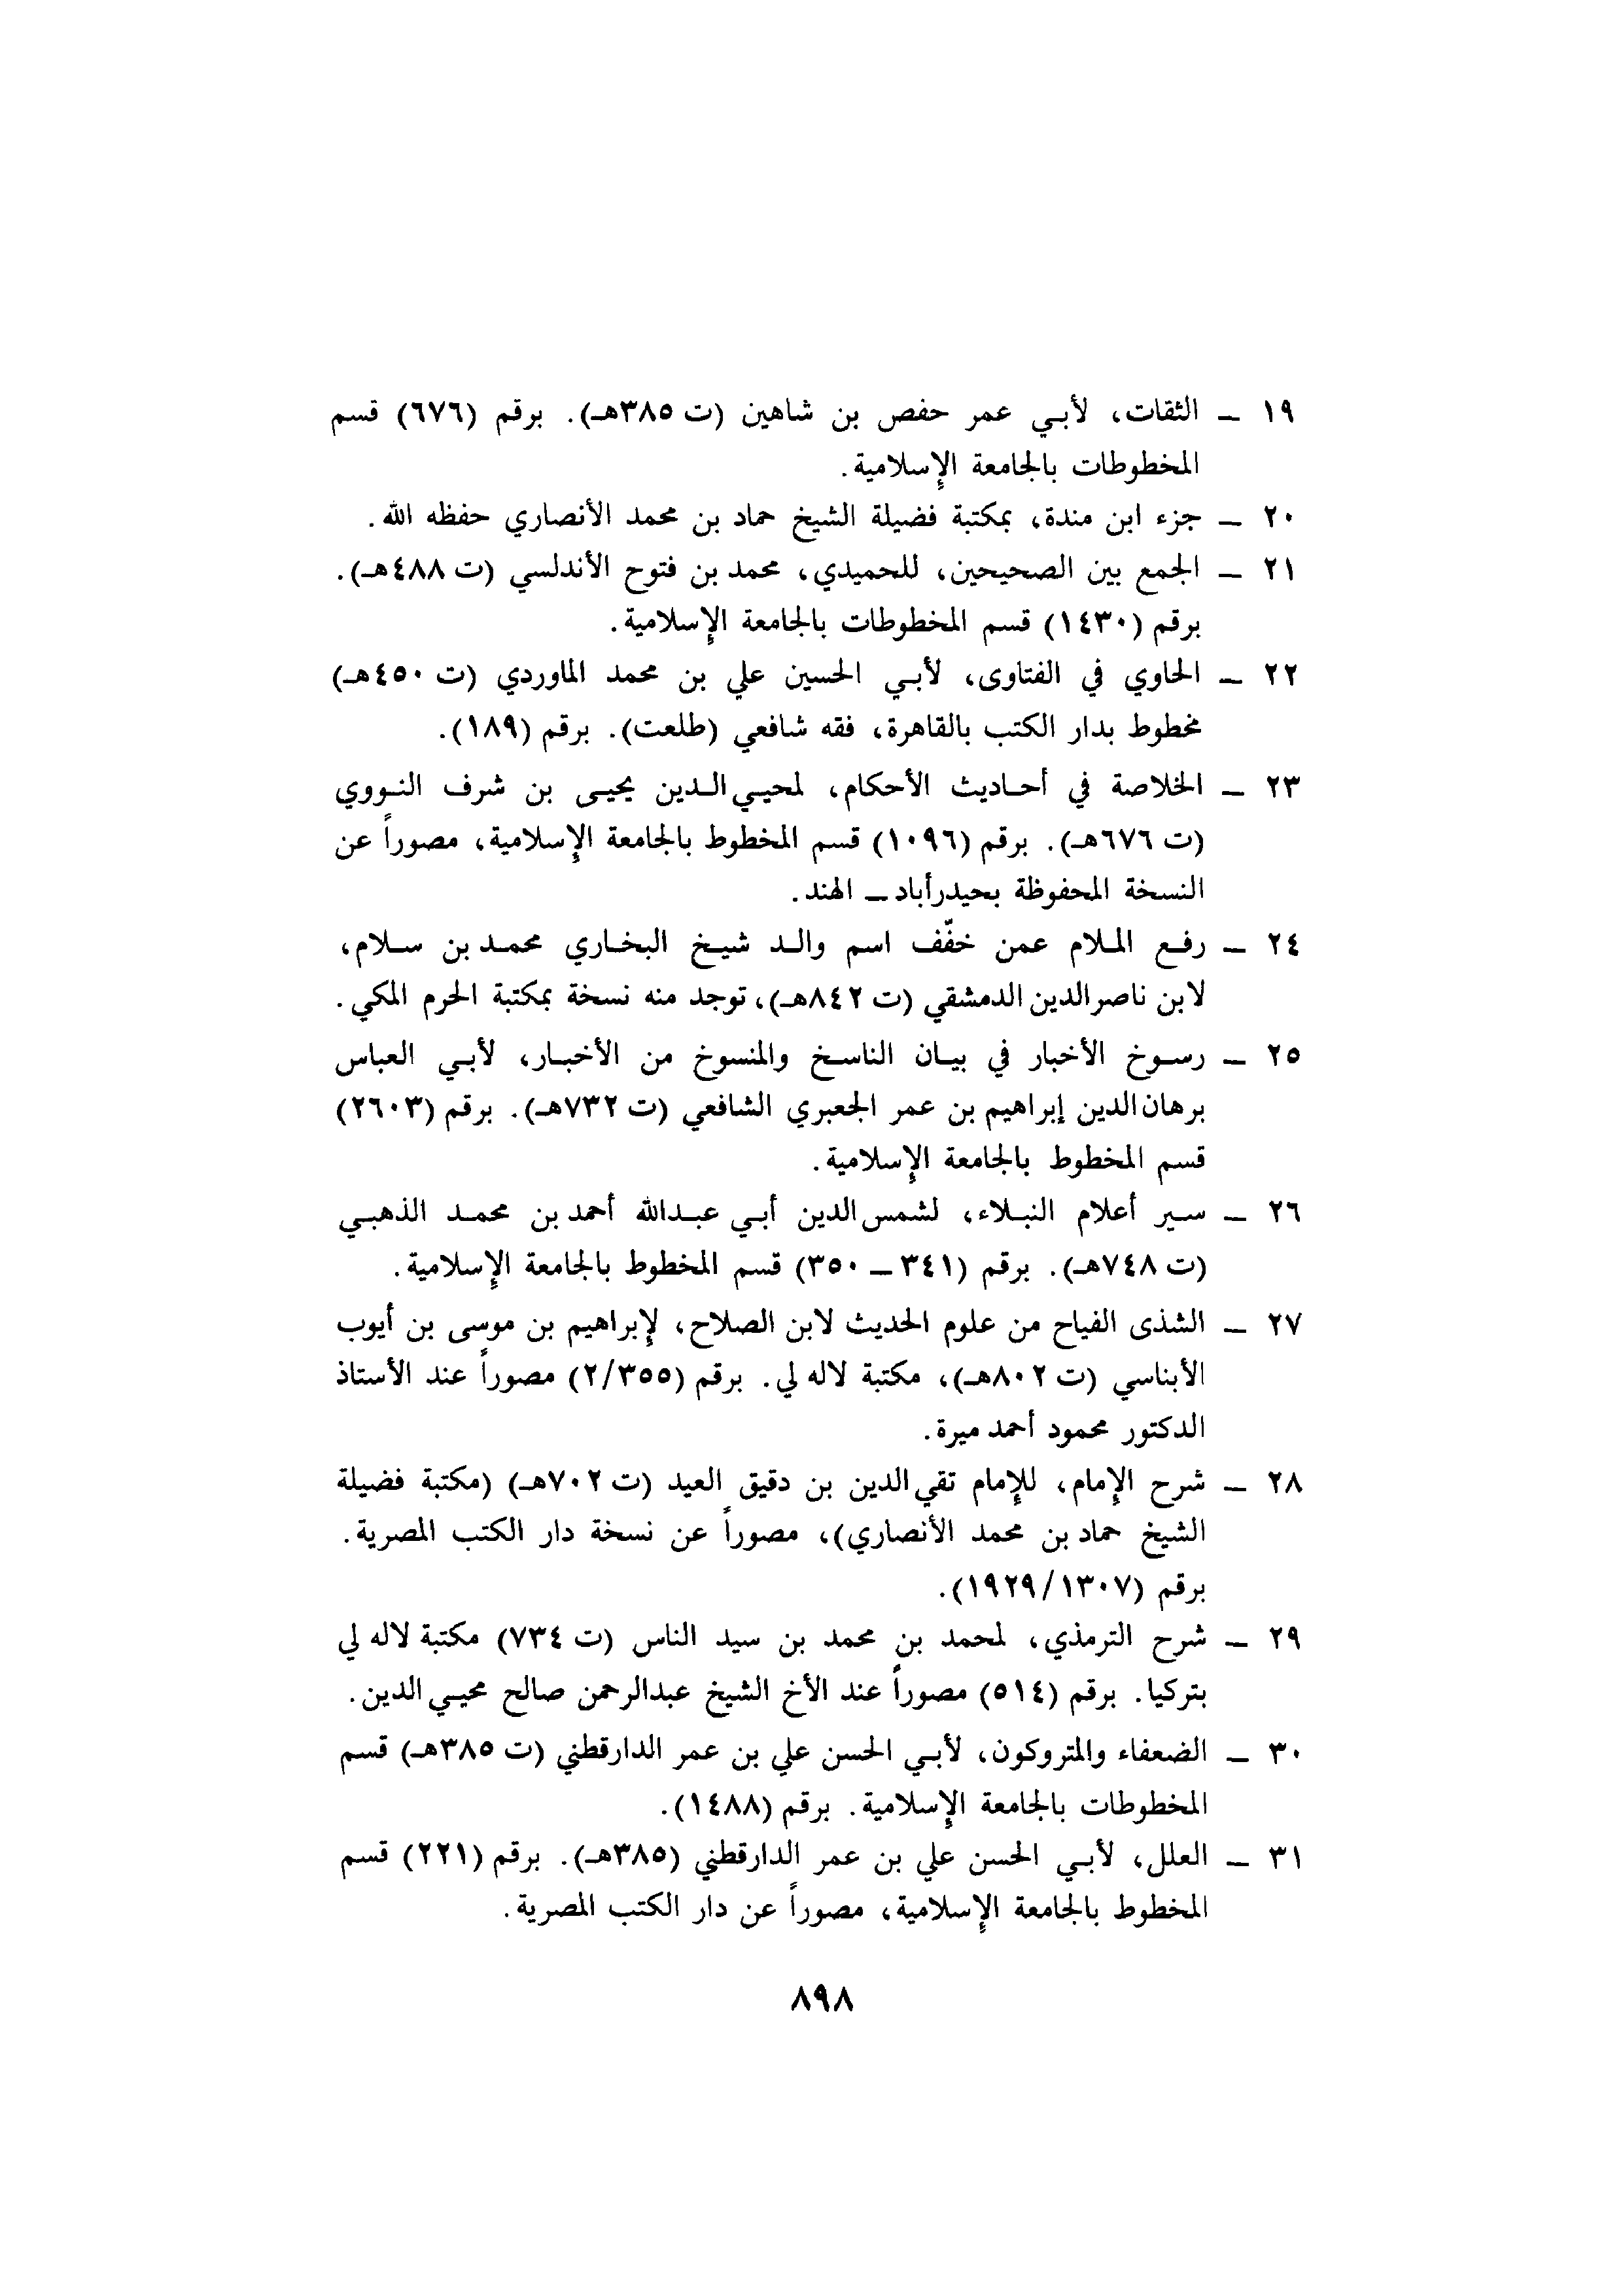 ١٩ ــ الثقات، لأبـي عمر حفص بن شاهين (ت ٣٨٥هـ). برقم (٦٧٦) قسم
المخطوطات بالجامعة الإسلامية.
٢٠ ــ جزء ابن مندة، بمكتبة فضيلة الشيخ حماد بن محمد الأنصاري حفظه الله.
٢١ ــ الجمع بين الصحيحين، للحميدي، محمد بن فتوح الأندلسي (ت ٤٨٨هـ).
برقم (١٤٣٠) قسم المخطوطات بالجامعة الإسلامية.
٢٢ ــ الحاوي في الفتاوى، لأبـي الحسين علي بن محمد الماوردي (ت ٤٥٠هـ)
مخطوط بدار الكتب بالقاهرة، فقه شافعي (طلعت). برقم (١٨٩).
٢٣ ــ الخلاصة في أحـاديث الأحكام، لمحيـي الـدين يحيـى بن شرف النـووي
(ت ٦٧٦هـ). برقم (١٠٩٦) قسم المخطوط بالجامعة الإسلامية، مصوراً عن
النسخة المحفوظة بحيدرأباد ــ الهند.
٢٤ ــ رفـع المـلام عمن خفّف اسم والـد شيـخ البخـاري محمـد بن سـلام،
لابن ناصرالدين الدمشقي (ت ٨٤٢هـ)، توجد منه نسخة بمكتبة الحرم المكي.
٢٥ ــ رسـوخ الأخبار في بيـان الناسـخ والمنسوخ من الأخبـار، لأبـي العباس
برهان الدين إبراهيم بن عمر الجعبري الشافعي (ت ٧٣٢هـ). برقم (٢٦٠٣)
قسم المخطوط بالجامعة الإسلامية.
٢٦ ــ سـير أعلام النبـلاء، لشمس الدين أبـي عبـدالله أحمد بن محمـد الذهبـي
(ت ٧٤٨هـ). برقم (٣٤١ ــ ٣٥٠) قسم المخطوط بالجامعة الإسلامية.
٢٧ ــ الشذى الفياح من علوم الحديث لابن الصلاح، لإبراهيم بن موسى بن أيوب
الأبناسي (ت ٨٠٢هـ)، مكتبة لاله لي. برقم (٢/٣٥٥) مصوراً عند الأستاذ
الدكتور محمود أحمد ميرة.
٢٨ ــ شرح الإمام، للإمام تقي الدين بن دقيق العيد (ت ٧٠٢هـ) (مكتبة فضيلة
الشيخ حماد بن محمد الأنصاري)، مصوراً عن نسخة دار الكتب المصرية.
برقم (١٩٢٩/١٣٠٧).
٢٩ ــ شرح الترمذي، لمحمد بن محمد بن سيد الناس (ت ٧٣٤) مكتبة لاله لي
بتركيا. برقم (٥١٤) مصوراً عند الأخ الشيخ عبدالرحمن صالح محيـي الدين.
٣٠ ــ الضعفاء والمتروكون، لأبـي الحسن علي بن عمر الدارقطني (ت ٣٨٥هـ) قسم
المخطوطات بالجامعة الإسلامية. برقم (١٤٨٨).
٣١ ــ العلل، لأبـي الحسن علي بن عمر الدارقطني (٣٨٥هـ). برقم (٢٢١) قسم
المخطوط بالجامعة الإسلامية، مصوراً عن دار الكتب المصرية.
٨٩٨